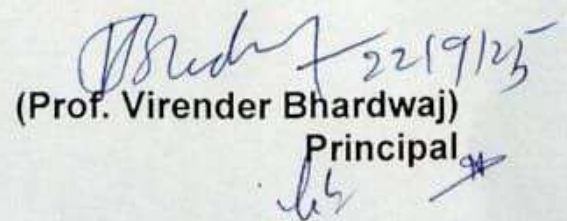 22/9/25
(Prof. Virender Bhardwaj)
Principal